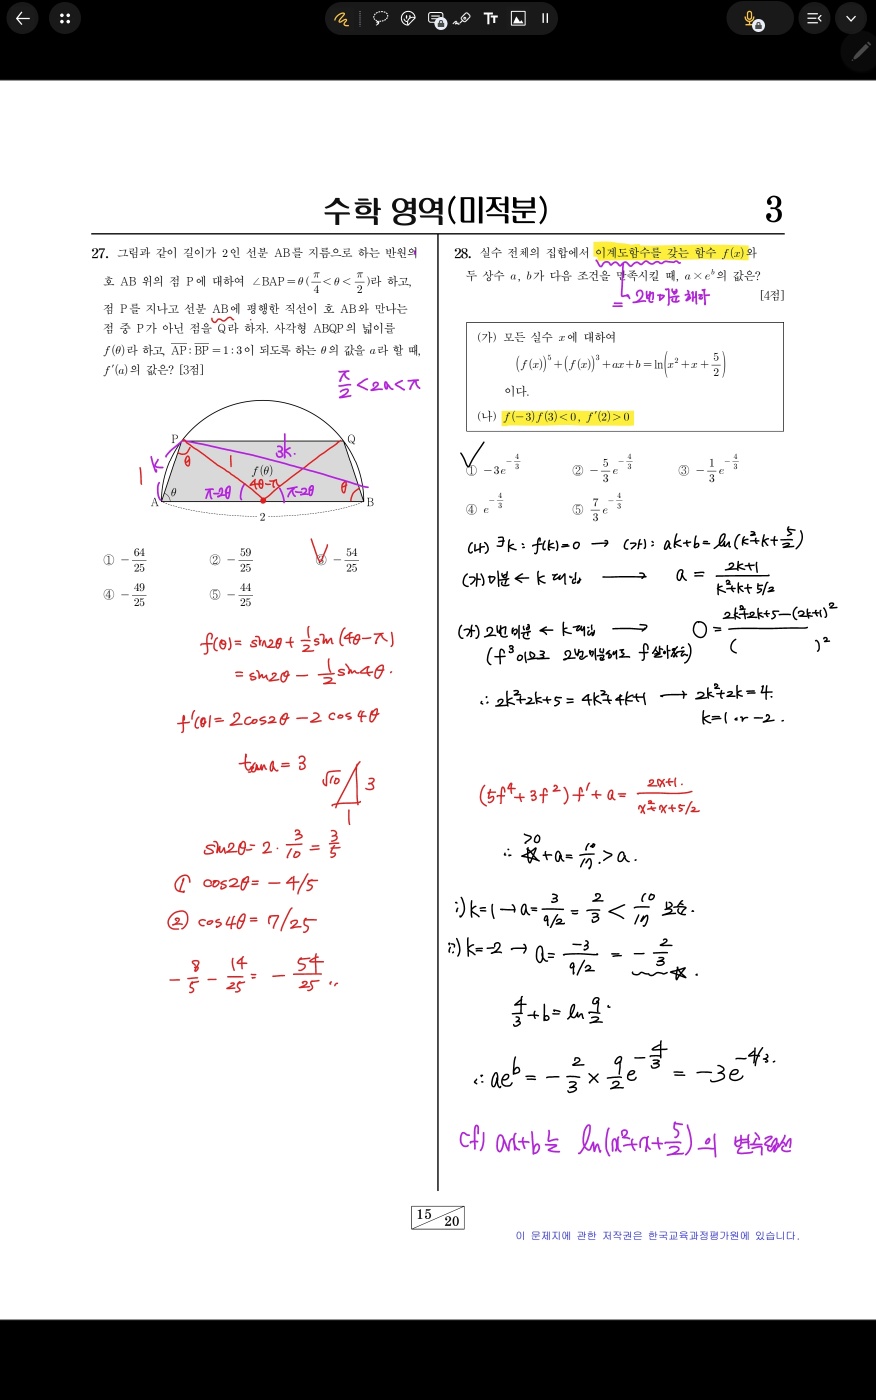 수학 영역(미적분)
3
27. 그림과 같이 길이가 2인 선분 AB를 지름으로 하는 반원의
호 AB 위의 점 P에 대하여 ∠BAP=θ(π/4<θ<π/2)라 하고,
점 P를 지나고 선분 AB에 평행한 직선이 호 AB와 만나는
점 중 P가 아닌 점을 Q라 하자. 사각형 ABQP의 넓이를
f(θ)라 하고, AP:BP=1:3이 되도록 하는 θ의 값을 a라 할 때,
f′(a)의 값은? [3점]
π/2<2a<π
P
Q
k
θ
1
3k.
1
f(θ)
4θ-π
θ
A
θ
π-2θ
π-2θ
B
2
① -64/25
② -59/25
③ -54/25
④ -49/25
⑤ -44/25
f(θ)= sin2θ+1/2 sin(4θ-π)
= sin2θ - 1/2 sin4θ.
f′(θ)= 2cos2θ-2cos4θ
tana=3
√10
3
1
sin2θ= 2·3/10 = 3/5
① cos2θ= -4/5
② cos4θ= 7/25
-8/5 - 14/25 = -54/25
28. 실수 전체의 집합에서 이계도함수를 갖는 함수 f(x)와
두 상수 a, b가 다음 조건을 만족시킬 때, a×e^b의 값은?
= 2번 미분 해라
[4점]
(가) 모든 실수 x에 대하여
(f(x))^5+(f(x))^3+ax+b=ln(x²+x+5/2)
이다.
(나) f(-3)f(3)<0, f′(2)>0
① -3e^(-4/3)
② -5/3 e^(-4/3)
③ -1/3 e^(-4/3)
④ e^(-4/3)
⑤ 7/3 e^(-4/3)
(나) ∃k: f(k)=0 → (가): ak+b=ln(k²+k+5/2)
(가) 미분 ← k 대입 → a = (2k+1)/(k²+k+5/2)
(가) 2번 미분 ← k 대입 → 0 = (2k²+2k+5-(2k+1)²)/( )²
(f³이므로 2번 미분해도 f 살아있음)
∴ 2k²+2k+5 = 4k²+4k+1 → 2k²+2k=4.
k=1 or -2.
(5f⁴+3f²)f′+a= (2x+1)/(x²+x+5/2)
>0
∴ ☆+a= 10/17 > a.
i) k=1 → a= 3/(9/2) = 2/3 < 10/17 모순.
ii) k=-2 → a= -3/(9/2) = -2/3 ☆.
4/3+b= ln 9/2.
∴ ae^b = -2/3 × 9/2 e^(-4/3) = -3e^(-4/3).
cf) ax+b는 ln(x²+x+5/2)의 변곡접선
15
20
이 문제지에 관한 저작권은 한국교육과정평가원에 있습니다.